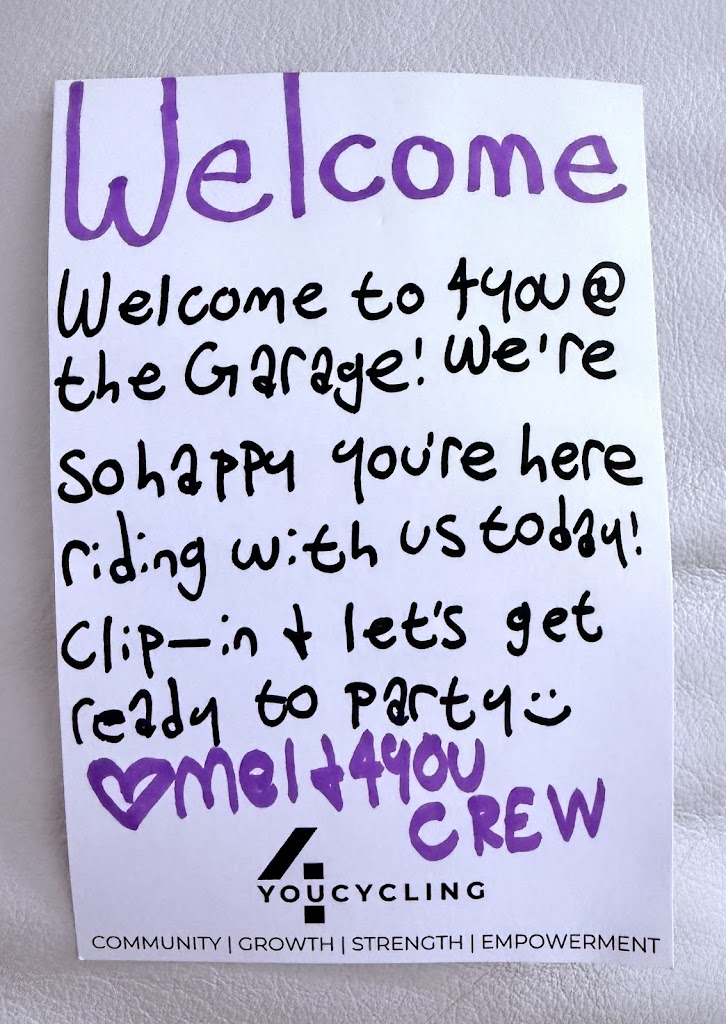 Welcome
Welcome to 4you@
the Garage! We're
so happy you're here
riding with us today!
Clip-in & let's get
ready to party
Mel & 4you
CREW
4
YOUCYCLING
COMMUNITY | GROWTH | STRENGTH | EMPOWERMENT